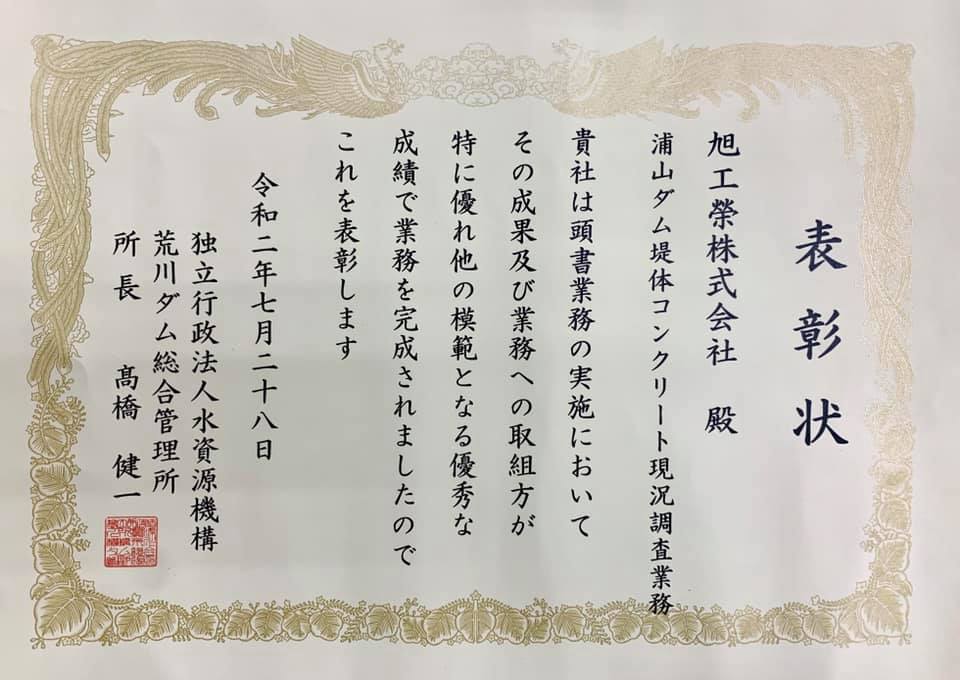 表彰状
旭工榮株式会社 殿
浦山ダム堤体コンクリート現況調査業務
貴社は頭書業務の実施において
その成果及び業務への取組方が
特に優れ他の模範となる優秀な
成績で業務を完成されましたので
これを表彰します
令和二年七月二十八日
独立行政法人水資源機構
荒川ダム総合管理所
所長 髙橋 健一